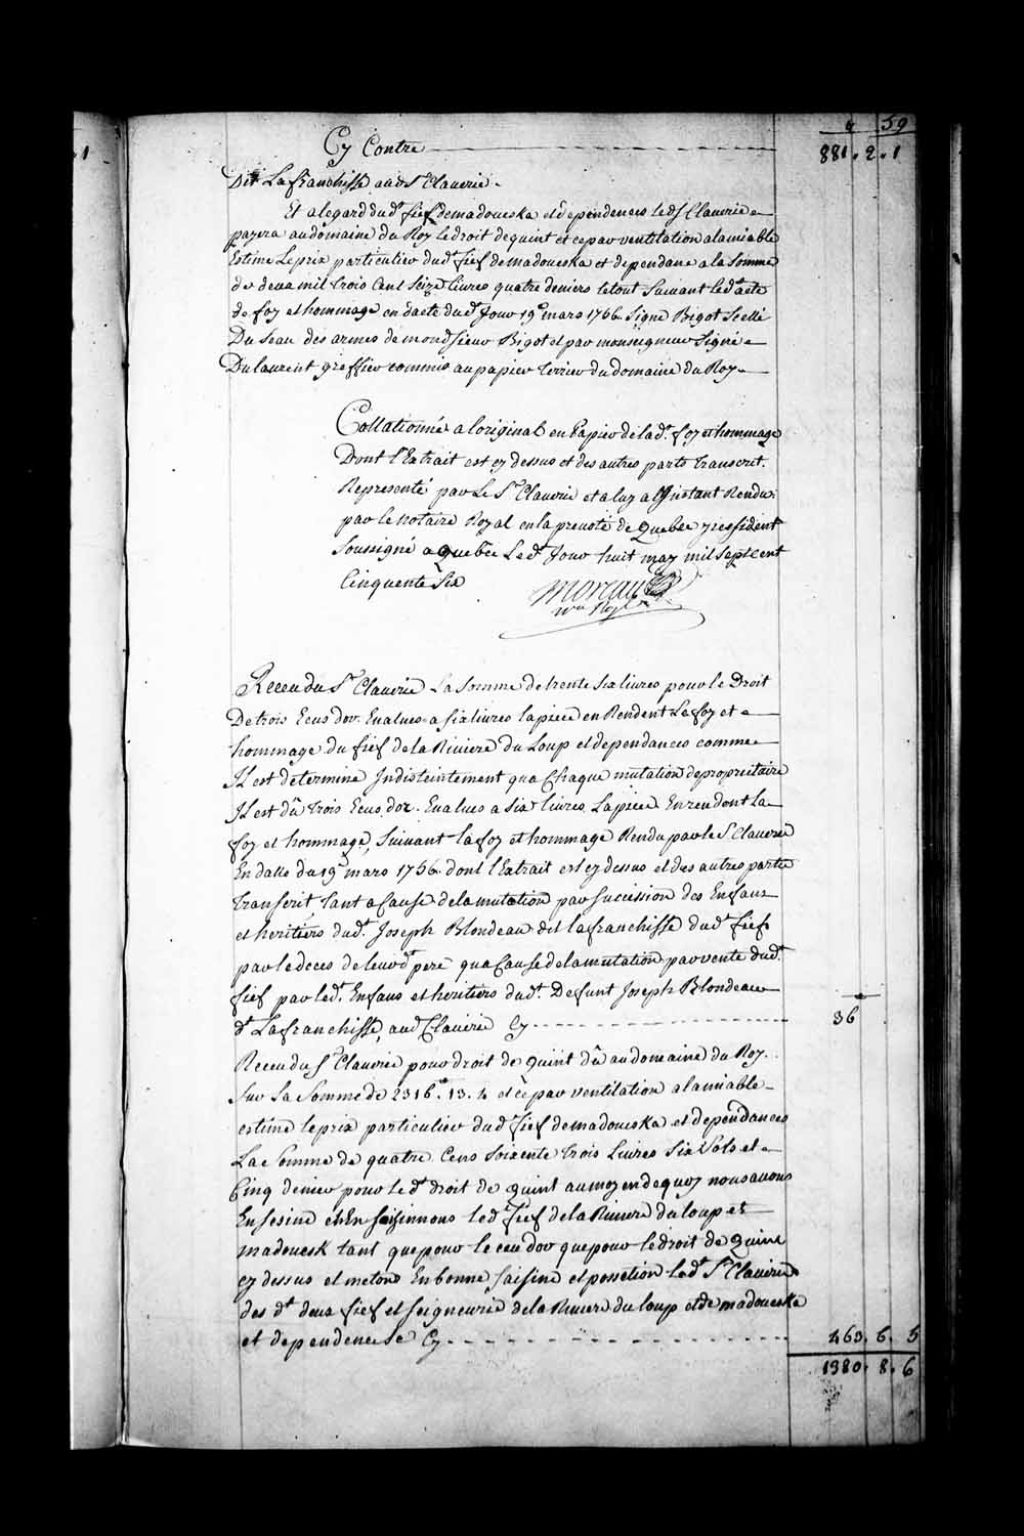 59
Cy Contre 881. 2. 1
Dit Lafranchisse aud Sr. Claverie.
Et alegard dud. fief de madoueska et dependences led S Claverie
payera au domaine du Roy le droit de quint et ce par ventilation alamiable
Estimé Le prix particulier dud. fief de madoueska et dependane a la Somme
de deux mil trois Cent Seize livres quatre deniers le tout Suivant led. acte
de foy et hommage en date dud. Jour 19e mars 1756 Signé Bigot Scellé
Du Seau des armes de mond Sieur Bigot et par monseigneur Signé
Dulaurent greffier commis au papier terrier du domaine du Roy
Collationné a loriginal en Papier de lad. foy et hommage
Dont l'Extrait est cy dessus et des autres parts transcrit.
Representé par Le Sr. Claverie et a luy a l'Instant Rendu
par le notaire Royal en la prevoté de Quebec y residant
Soussigné a Quebec Led. Jour huit may mil Sept cent
Cinquente Six
Moreau
nre Royl
Receu du Sr. Claverie La Somme de trente Six livres pour le Droit
De trois Ecus dor Evalués a six livres la piece en Rendent La foy et
hommage du fief de la Riviere du Loup et dependances comme
Il est determiné Indisteintement qua Chaque mutation de proprietaire
Il est dû trois Ecus dor. Evalues a Six livres La piece En rendont La
foy et hommage, Suivant la foy et hommage Rendu par le S. Claverie
En datte du 19e mars 1756 dont l'Extrait est cy dessus et des autres parts
transcrit, tant a Cause de la mutation par Succession des Enfans
et heritiers dud. Joseph Blondeau dit lafranchisse dud. fief
par le deces de leur d. pere qua Cause de la mutation par vente dud.
fief par led. Enfans et heritiers dud. Defunt Joseph Blondeau
dt Lafranchisse, aud Claverie Cy 36
Receu du S. Claverie pour droit de quint dû au domaine du Roy.
Sur La Somme de 2316. 13. 4 et ce par ventilation a lamiable
estimé le prix particulier dud. fief de madoueska et dependances
La Somme de quatre Cens Soixente trois Livres Six Sols et
Cinq denier pour led. droit de quint au moyen de quoy nous avons
Ensesiné et En Saisinnons led. fief de la Riviere du loup et
madouesk tant que pour le ecu dor que pour le droit de Quint
cy dessus et metons En bonne Saisine et possetion led. Sr. Claverie
des dt. deux fief et seigneurie de la Riviere du loup et de madoueska
et dependences Cy 463. 6. 5
1380. 8. 6